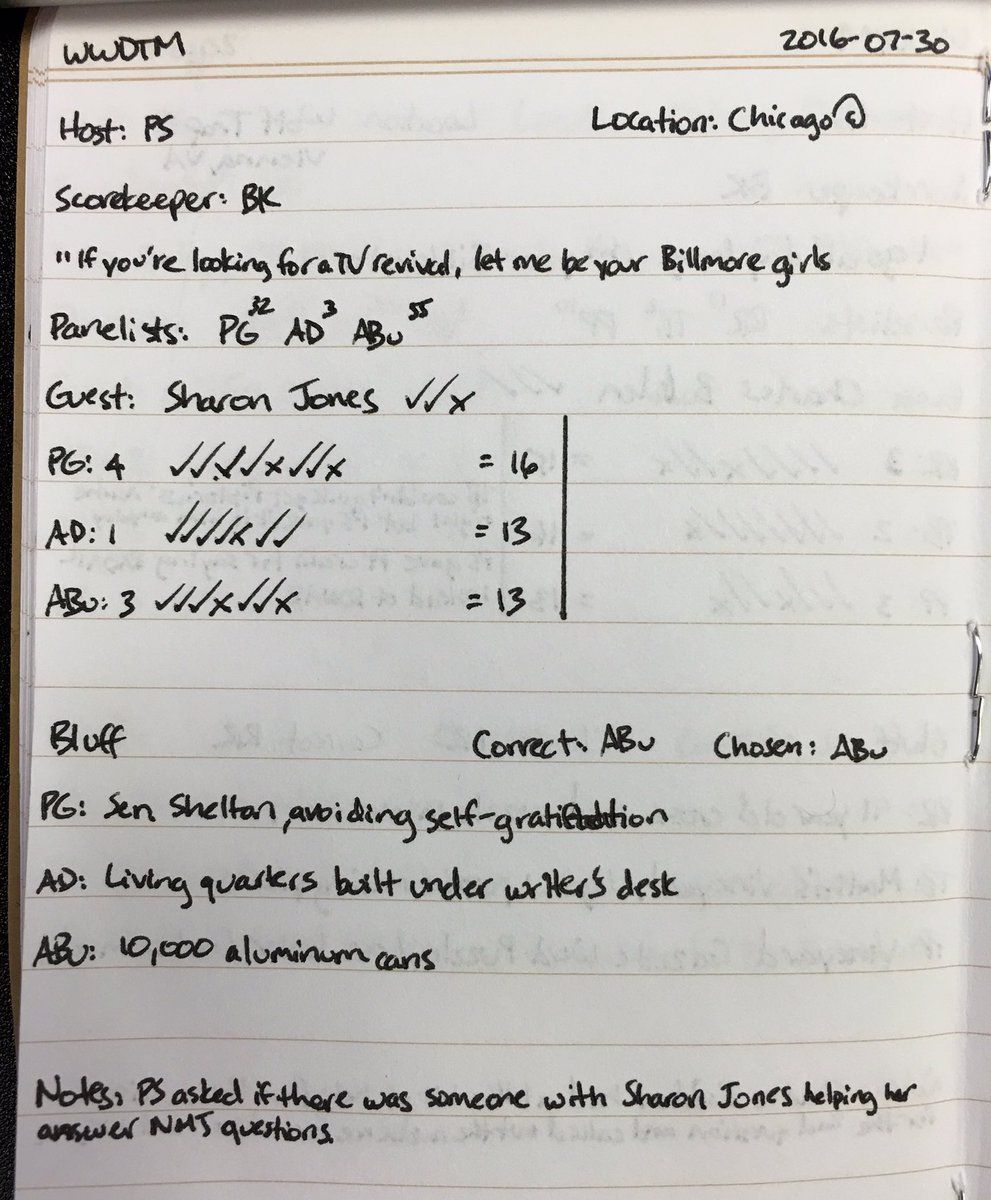 WWDTM 2016-07-30
Host: PS Location: Chicago
Scorekeeper: BK
"If you're looking for a TV revived, let me be your Billmore girls
Panelists: PG³² AD³ ABu⁵⁵
Guest: Sharon Jones ✓✓x
PG: 4 ✓✓✓✓x✓✓x = 16
AD: 1 ✓✓✓✓x✓✓ = 13
ABu: 3 ✓✓✓x✓✓x = 13
Bluff Correct: ABu Chosen: ABu
PG: Sen Shelton, avoiding self-gratification
AD: Living quarters built under writer's desk
ABu: 10,000 aluminum cans
Notes: PS asked if there was someone with Sharon Jones helping her
answer NMJ questions.